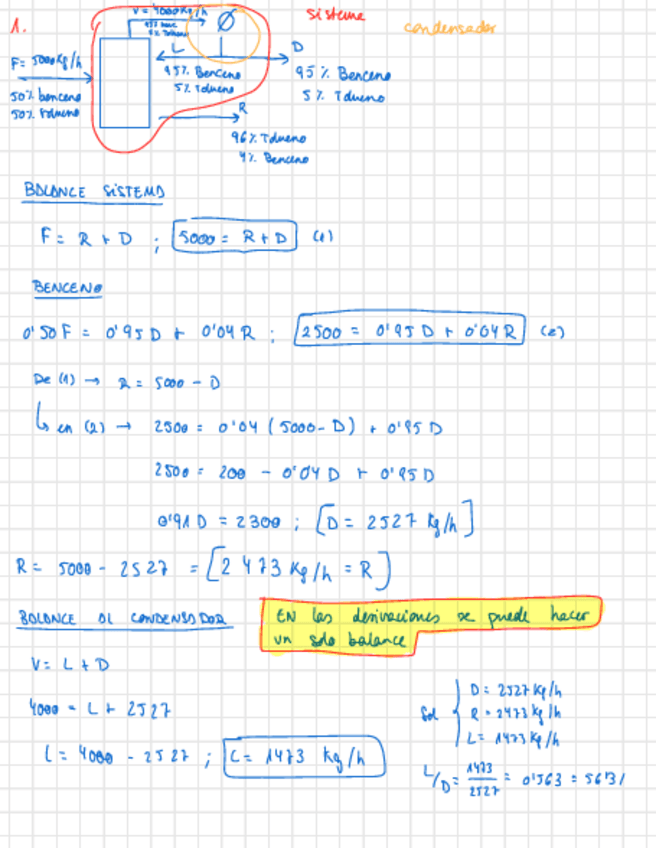 1.
V = 4000 Kg/h
sistema
condensador
5% Tolueno
L
D
F = 5000 Kg/h
95% Benceno
5% Tolueno
95% Benceno
5% Tolueno
50% benceno
50% tolueno
R
96% Tolueno
4% Benceno
BALANCE SISTEMA
F = R + D ; 5000 = R + D (1)
BENCENO
0'50 F = 0'95 D + 0'04 R ; 2500 = 0'95 D + 0'04 R (2)
De (1) → R = 5000 - D
↳ en (2) → 2500 = 0'04 (5000 - D) + 0'95 D
2500 = 200 - 0'04 D + 0'95 D
0'91 D = 2300 ; [D = 2527 Kg/h]
R = 5000 - 2527 = [2473 Kg/h = R]
BALANCE AL CONDENSADOR
EN las derivaciones se puede hacer
un solo balance
V = L + D
4000 = L + 2527
L = 4000 - 2527 ; L = 1473 Kg/h
Sol
D = 2527 Kg/h
R = 2473 Kg/h
L = 1473 Kg/h
L/D = 1473/2527 = 0'563 = 56'3%